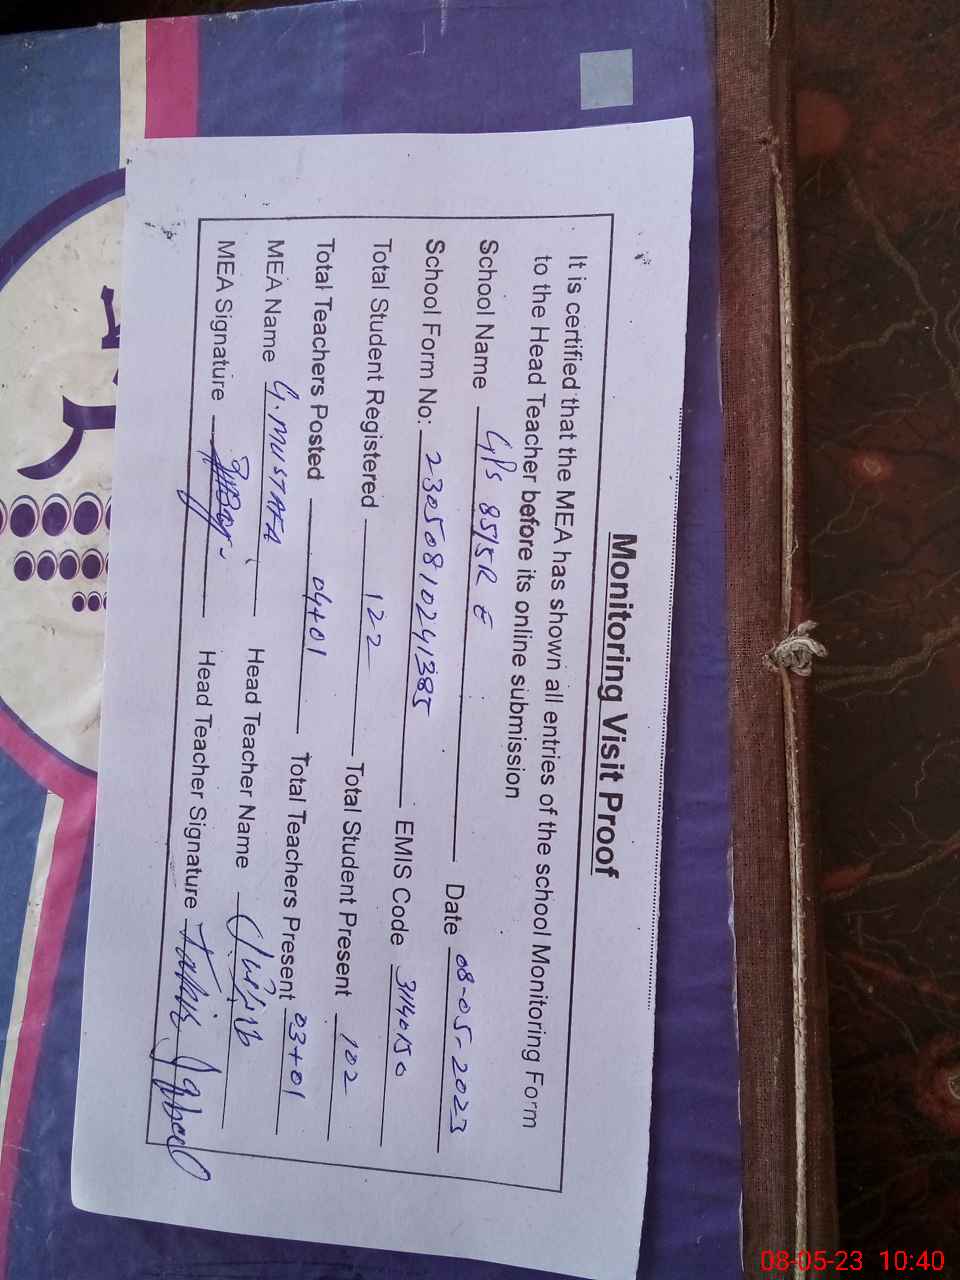 Monitoring Visit Proof
It is certified that the MEA has shown all entries of the school Monitoring Form
to the Head Teacher before its online submission
School Name GPS 85/5R E Date 08-05-2023
School Form No: 23050810241385 EMIS Code 31140150
Total Student Registered 122 Total Student Present 102
Total Teachers Posted 04+01 Total Teachers Present 03+01
MEA Name G. MUSTAFA Head Teacher Name
MEA Signature Head Teacher Signature
08-05-23 10:40